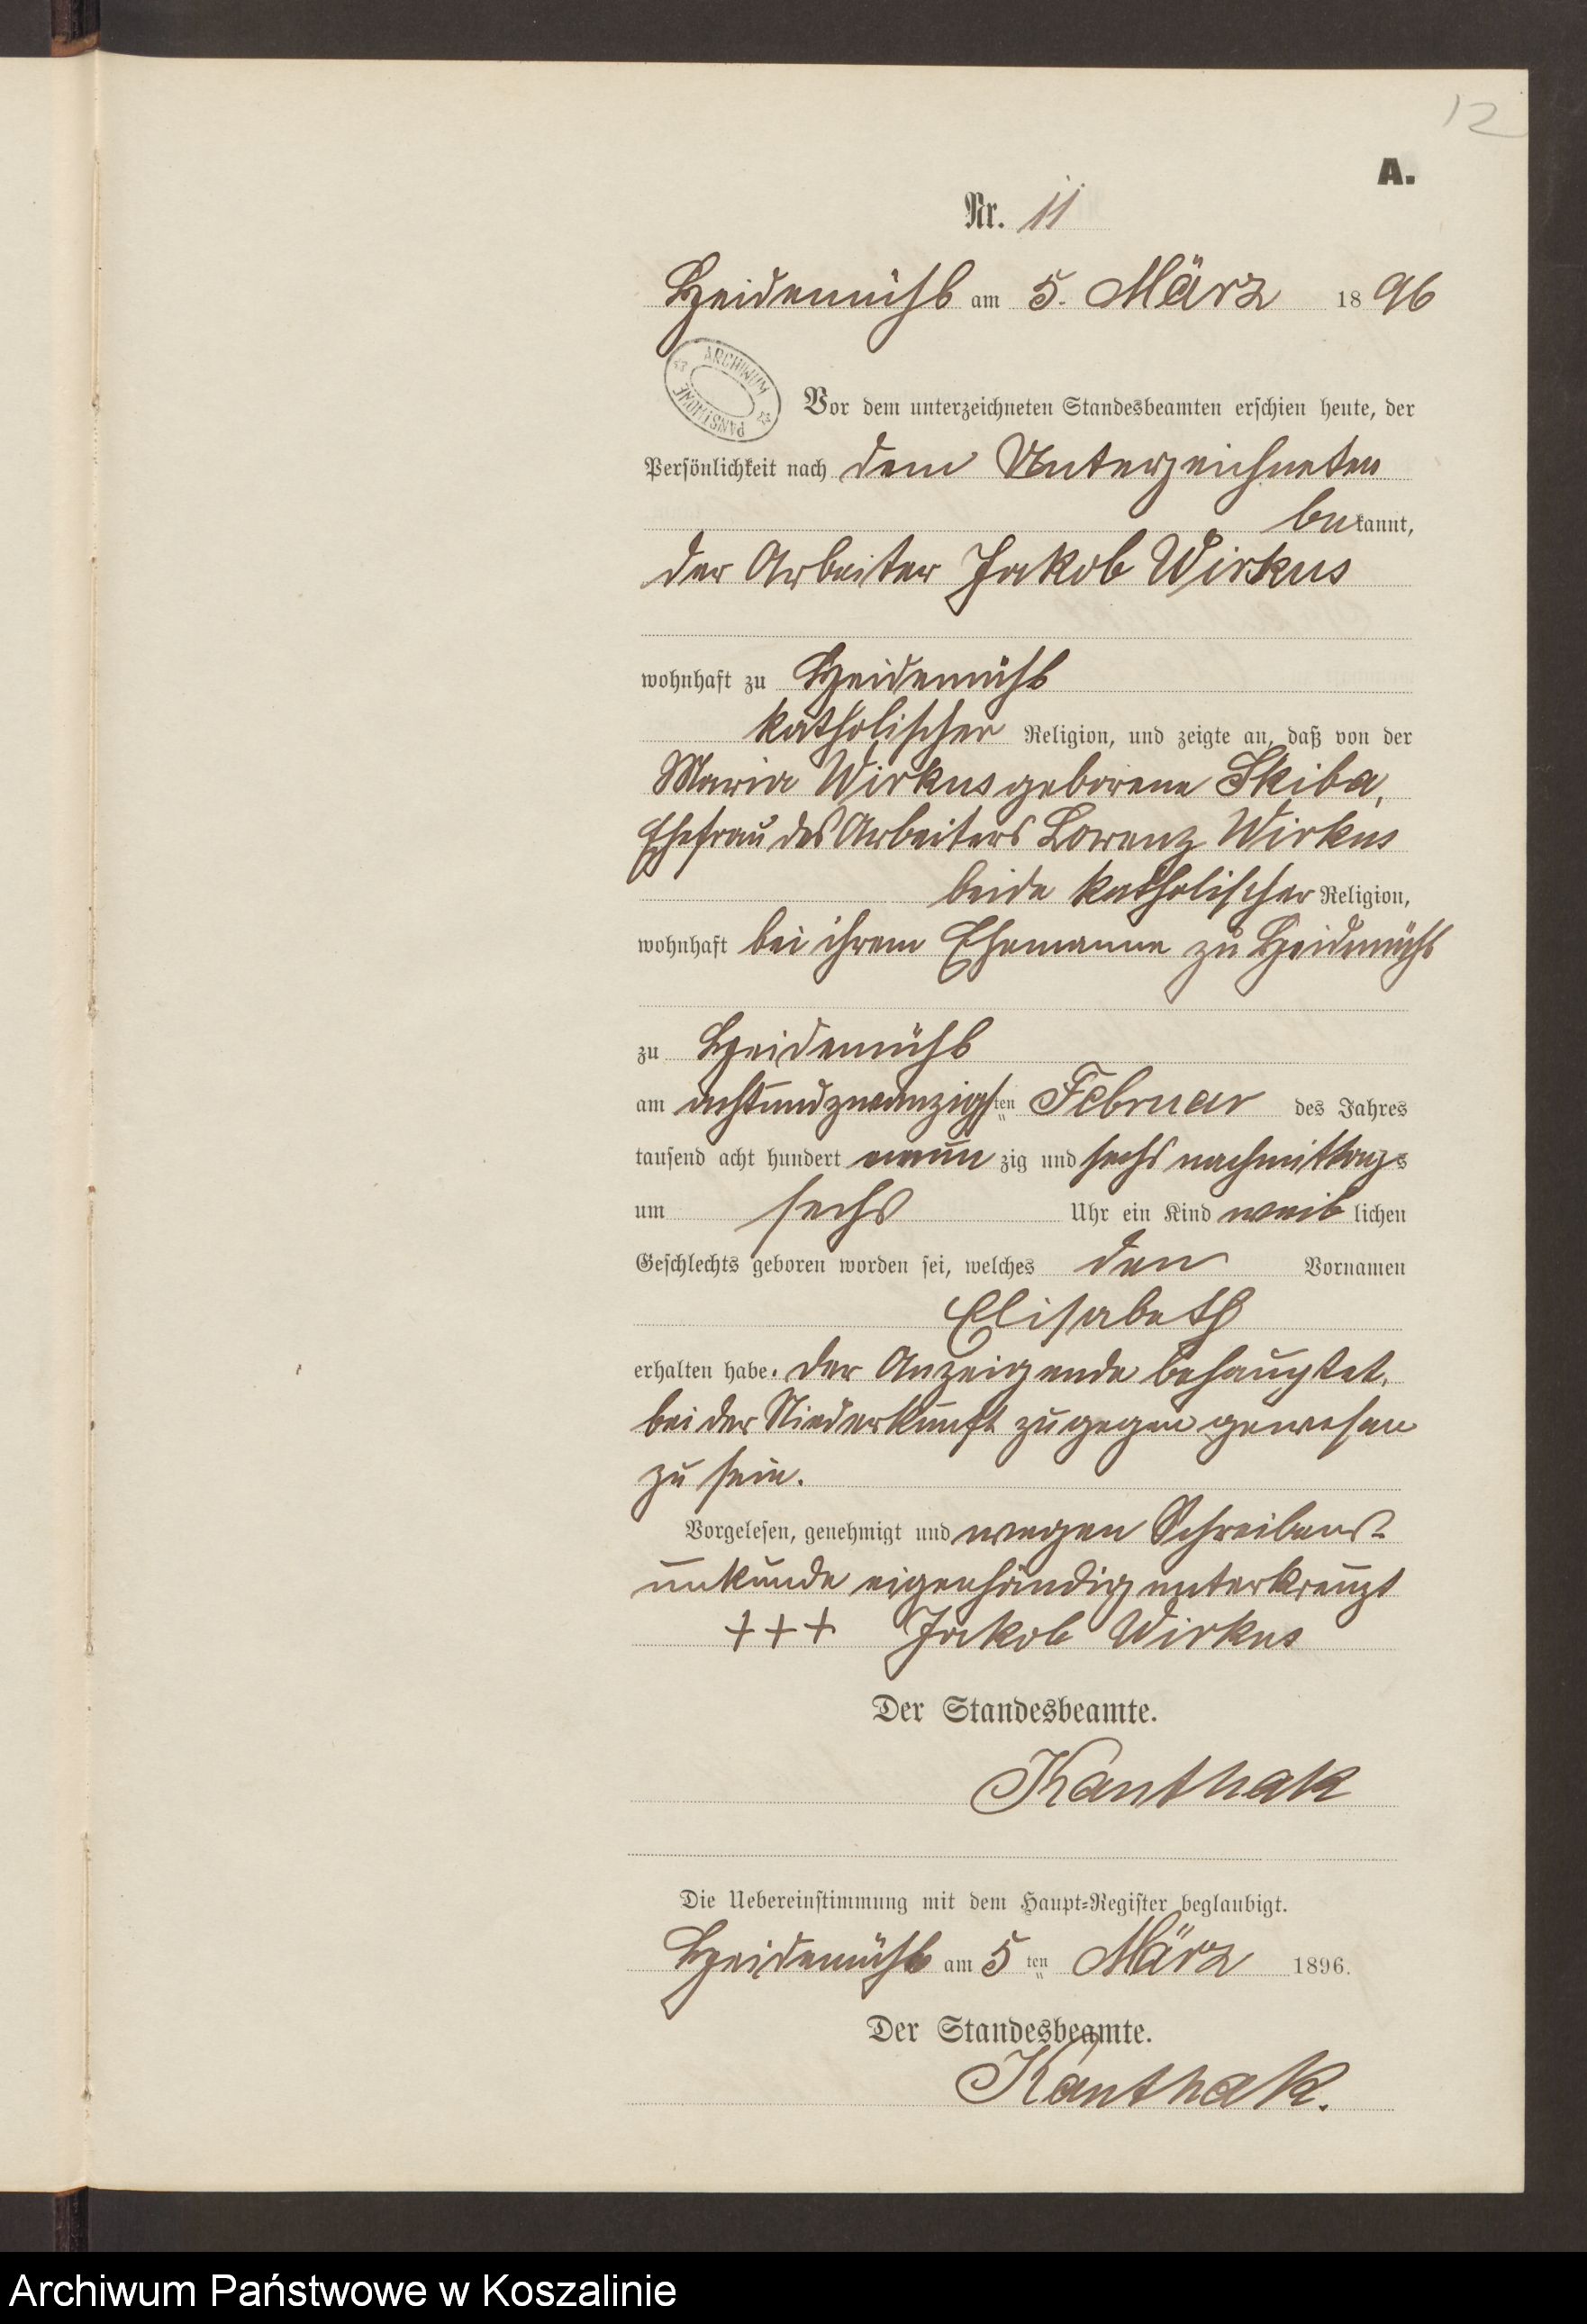 12
A.
Nr. 11
Heidemühl am 5. März 1896
ARCHIWUM PAŃSTWOWE
Vor dem unterzeichneten Standesbeamten erschien heute, der
Persönlichkeit nach dem Unterzeichneten
bekannt,
der Arbeiter Jakob Wirkus
wohnhaft zu Heidemühl
katholischer Religion, und zeigte an, daß von der
Maria Wirkus geborene Skiba,
Ehefrau des Arbeiters Lorenz Wirkus
beide katholischer Religion,
wohnhaft bei ihrem Ehemanne zu Heidemühl
zu Heidemühl
am achtundzwanzigsten Februar des Jahres
tausend acht hundert neunzig und sechs nachmittags
um sechs Uhr ein Kind weiblichen
Geschlechts geboren worden sei, welches den Vornamen
Elisabeth
erhalten habe. Der Anzeigende behauptet,
bei der Niederkunft zugegen gewesen
zu sein.
Vorgelesen, genehmigt und wegen Schreibens-
unkunde eigenhändig unterkreuzt
+++ Jakob Wirkus
Der Standesbeamte.
Kanthak
Die Uebereinstimmung mit dem Haupt-Register beglaubigt.
Heidemühl am 5ten März 1896.
Der Standesbeamte.
Kanthak.
Archiwum Państwowe w Koszalinie